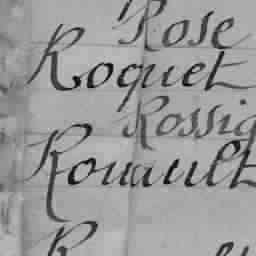 Rose
Roquet
Rossig
Rouault